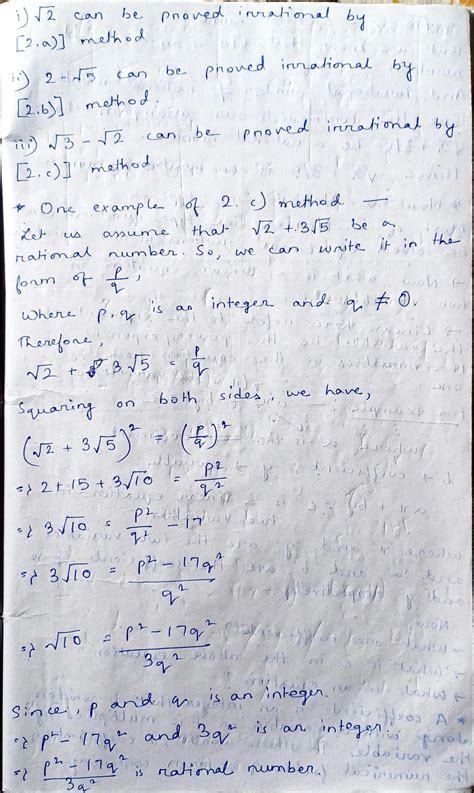 i) √2 can be proved irrational by
[2.a)] method.
ii) 2-√5 can be proved irrational by
[2.b)] method.
iii) √3 - √2 can be proved irrational by
[2.c)] method.
* One example of 2. c) method —
Let us assume that √2 + 3√5 be a
rational number. So, we can write it in the
form of p/q,
where p, q is an integer and q ≠ 0.
Therefore,
√2 + 3√5 = p/q
Squaring on both sides, we have,
(√2 + 3√5)² = (p/q)²
=> 2 + 15 + 3√10 = p²/q²
=> 3√10 = p²/q² - 17
=> 3√10 = (p² - 17q²)/q²
=> √10 = (p² - 17q²)/3q²
Since, p and q is an integer.
=> p² - 17q² and 3q² is an integer.
=> (p² - 17q²)/3q² is rational number.